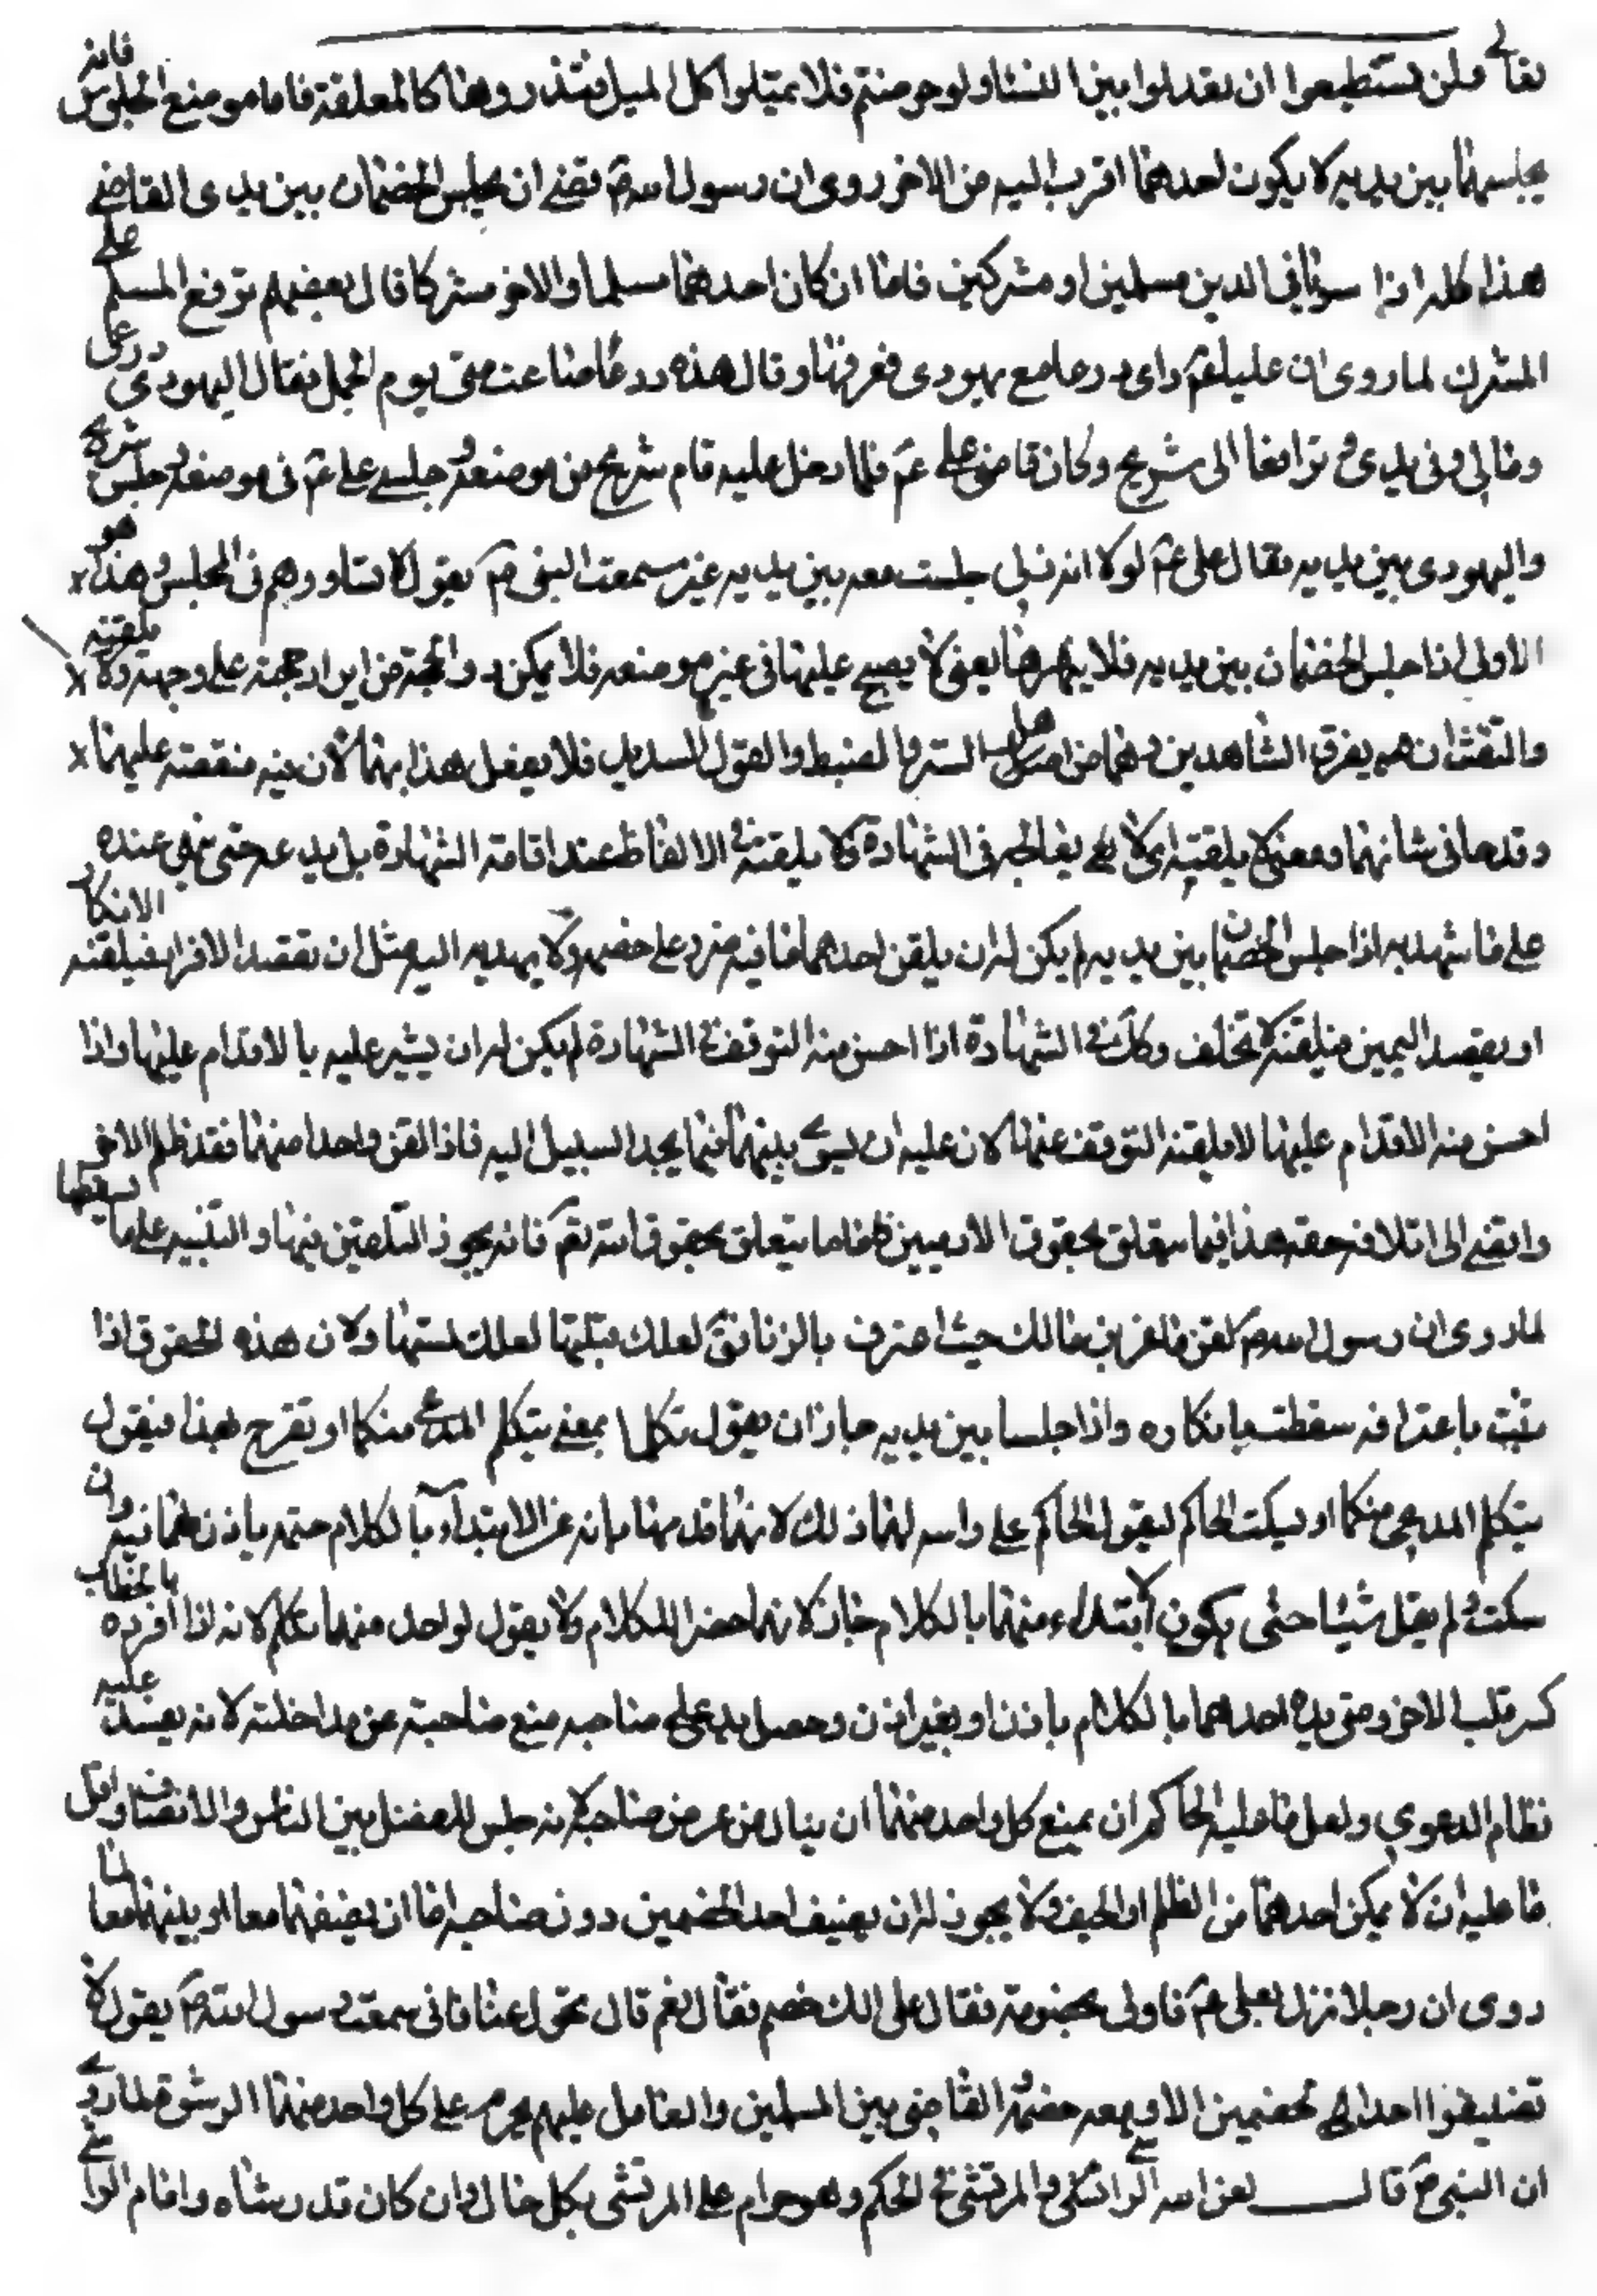 تعالى ولن تستطيعوا ان تعدلوا بين النساء ولو حرصتم فلا تميلوا كل الميل فتذروها كالمعلقة فاما موضع الجلوس فانه
يجلسهما بين يديه لا يكون احدهما اقرب اليه من الاخر روى ان رسول الله ص قضى ان يجلس الخصمان بين يدى القاضى
هذا كله اذا سويا فى الدين مسلمين او مشركين فاما ان كان احدهما مسلما والاخر مشركا قال بعضهم ترفع المسلم على
المشرك لما روى ان عليا عم راى درعا مع يهودى فعرفها وقال هذه درعى ضاعت منى يوم الجمل فقال اليهودى درعى
ومالى وفى يدى ترافعا الى شريح وكان قاضى على عم فلما دخل عليه قام شريح من موضعه جلس على عم فى موضعه جلس شريح
واليهودى بين يديه فقال على عم لولا انه ذمى جلست معه بين يديه غير سمعت النبى ص يقول لا تساووهم فى المجلس وهذا هو
الاولى اذا جلس الخصمان بين يديه فلا ينهرهما يعنى لا يصيح عليهما فى غير موضعه فلا يمكن والحجة من ايرادحجته على وجهه ولا يلقنه
والتفت ان هم يفرق الشاهدين وهما من اهل الستر والضبط والقول السديد فلا يفعل هذا بهما لان فيه منقصة عليهما
وقدحا فى شانهما ومعنى لا يلقنه اى لا فى الشهادة ولا يلقنه الالفاظ عند اقامة الشهادة بل يدعه حتى ينهى عنده
على ما شهد به اذا جلس الخصمان بين يديه لم يكن له ان يلقن احدهما ما فيه ضرر على خصمه ولا يهديه اليه مثل ان يقصد الاقرار فيلقنه الانكار
او يقصد اليمين فيلقنه لا تحلف وكك فى الشهادة اذا احس منه التوقف فى الشهادة لم يكن له ان يشير عليه بالاقدام عليها واذا
احس منه الاقدام عليها لا يلقنه التوقف عنها لان عليه ان يسوى بينهما فيما يجد السبيل اليه فاذا لقن واحدا منهما فقد ظلم الاخر
وافضى الى اتلاف حقه هذا فيما يتعلق بحقوق الادميين فاما ما يتعلق بحقوق الله تعم فانه يجوز التلقين فيها والتنبيه على ما يسقطها
لما روى ان رسول الله ص لقن ماعز بن مالك حيث اعترف بالزنا فق لعلك قبلتها لعلك لمستها ولان هذه الحقوق اذا
ثبت باعترافه سقطت بانكاره واذا جلسا بين يديه جاز ان يقول تكلما بمعنى يتكلم المدعى منكما او تقرح لهذا فيقول
يتكلم المدعى منكما او يسكت الحاكم ليقول الحاكم على راسه لهما ذلك لانهما قد مهابانه عن الابتدآء بالكلام حتى ياذن لهما فيه وان
سكت لم يقل شيئا حتى يكون الابتداء منهما بالكلام جاز لانهما حضرا للكلام ولا يقول لواحد منهما تكلم لانه اذا افرده بالخطاب
كسر قلب الاخر ومتى بدء احدهما بالكلام باذن او بغير اذن وحصل يدعى على صاحبه منع صاحبه عن مداخلته لانه يفسد عليه
نظام الدعوى ولعل ما عليه الحاكم ان يمنع كل واحد منهما ان ينال من عرض صاحبه لانه جلس للفصل بين الناس والانصاف واقل
ما عليه ان لا يمكن احدهما من الظلم او الحيف ولا يجوز له ان يضيف احد الخصمين دون صاحبه اما ان يضيفهما معا او معا
روى ان رجلا نزل بعلى عم فادلى بخصومة فقال على الك خصم فقال نعم قال تحول عنا فانى سمعت رسول الله ص يقول لا
تضيفوا احد الخصمين الا ومعه خصمه القاضى بين المسلمين والعامل عليهم يحرم على كل واحد منهما الرشوة لما روى
ان النبى ص قال لعن الله الراشى والمرتشى فى الحكم وهو حرام على المرتشى بكل حال وان كان قد رشاه واما الراشى